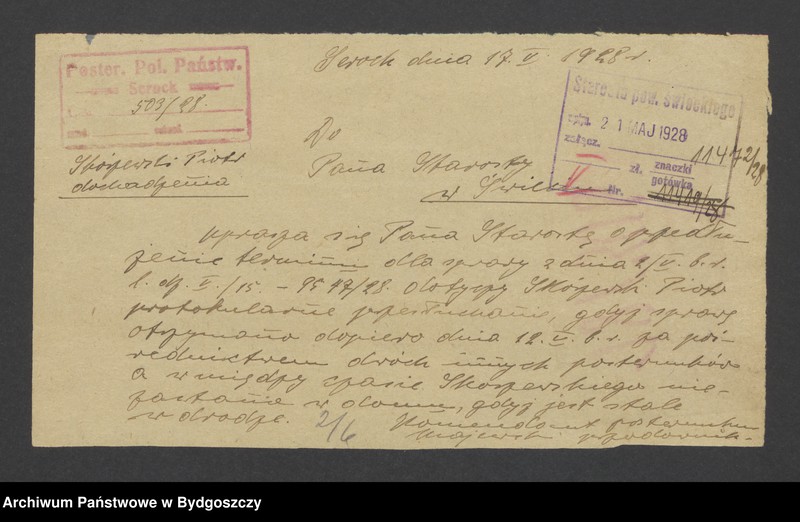 Serock dnia 17. V. 1928 r.
Poster. Pol. Państw.
Serock
L. 503/28.
Starostwo pow. Świeckiego
21 MAJ 1928
załącz.
11472/28
zł. znaczki
gotówka
Nr. 11419/28
Do
Pana Starosty
w Świeciu
Skóżewski Piotr
dochodzenia
uprasza się Pana Starostę o przedłu-
żenie terminu dla sprawy z dnia 2/V. b. r.
l. dz. V./15. – 9547/28. dotyczy Piotr
protokularne przesłuchanie, gdyż sprawę
otrzymano dopiero dnia 12. V. b. r. za poś-
rednictwem dwóch innych posterunków
a w między czasie nie-
zastano w domu, gdyż jest stale
w drodze.
2/6
Komendant posterunku
Majewski przodownik.
Archiwum Państwowe w Bydgoszczy